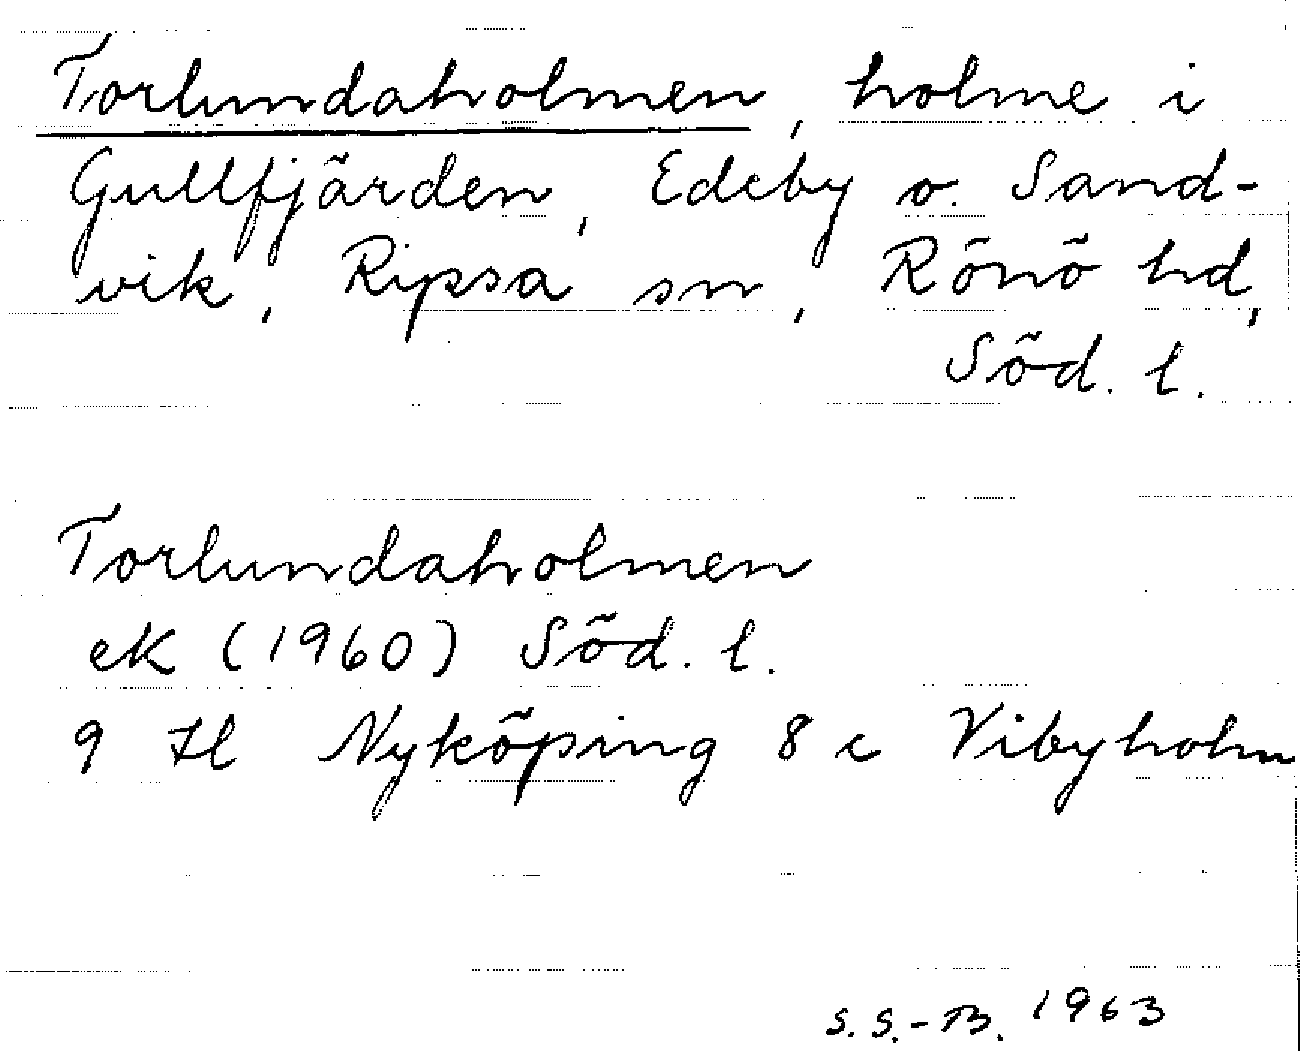 Torlundaholmen, holme i
Gullfjärden, Edeby o. Sand-
vik, Ripsa sn, Rönö hd,
Söd. l.
Torlundaholmen
ek (1960) Söd. l.
9 H Nyköping 8 c Vibyholm
S. S.-B. 1963